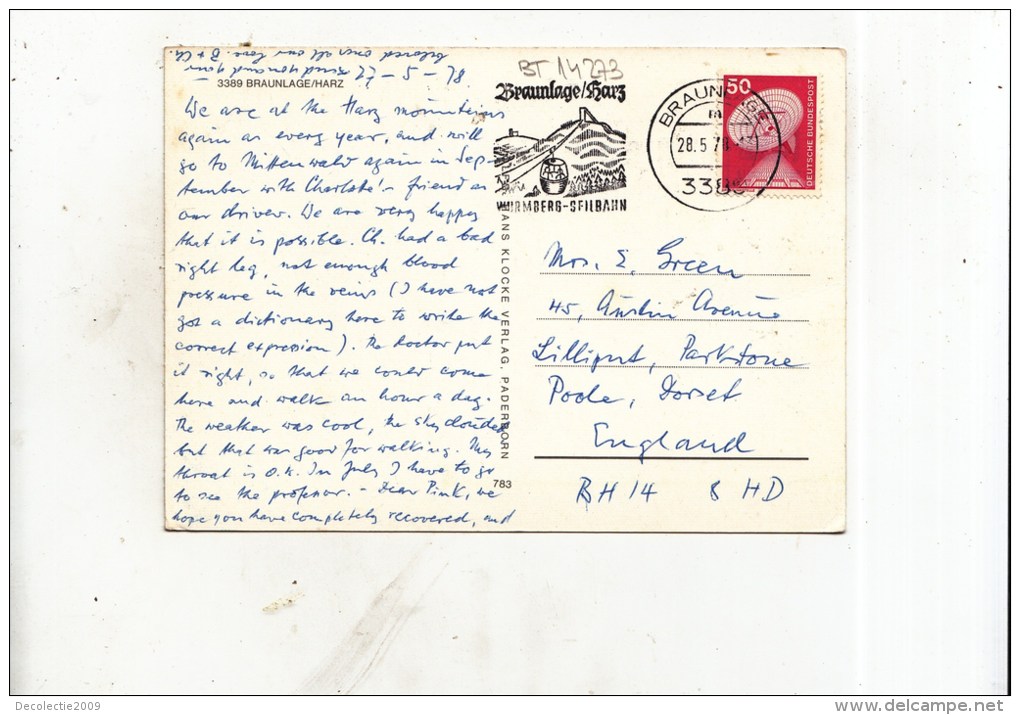 27-5-78
3389 BRAUNLAGE/HARZ
We are at the Harz mounteins
again as every year, and will
go to Mittenwald again in Sep-
tember with Charlotte's friend as
our driver. We are very happy
that it is possible. Ch. had a bad
right leg, not enough blood
pressure in the veins (I have not
got a dictionary here to write the
correct expression). The doctor put
it right, so that we could come
here and walk an hour a day.
The weather was cool, the sky clouded
but that was good for walking. My
throat is O.K. In July I have to go
to see the professor. - Dear Pink, we
hope you have completely recovered, and
all our love
HANS KLOCKE VERLAG, PADERBORN
783
BT 14273
Braunlage/Harz
WURMBERG-SEILBAHN
BRAUNLAGE
28.5.78
3389
50
DEUTSCHE BUNDESPOST
Mrs. E. Green
45, Austin Avenue
Lilliput, Parkstone
Poole, Dorset
England
BH14 8HD
Decolectie2009
www.delcampe.net